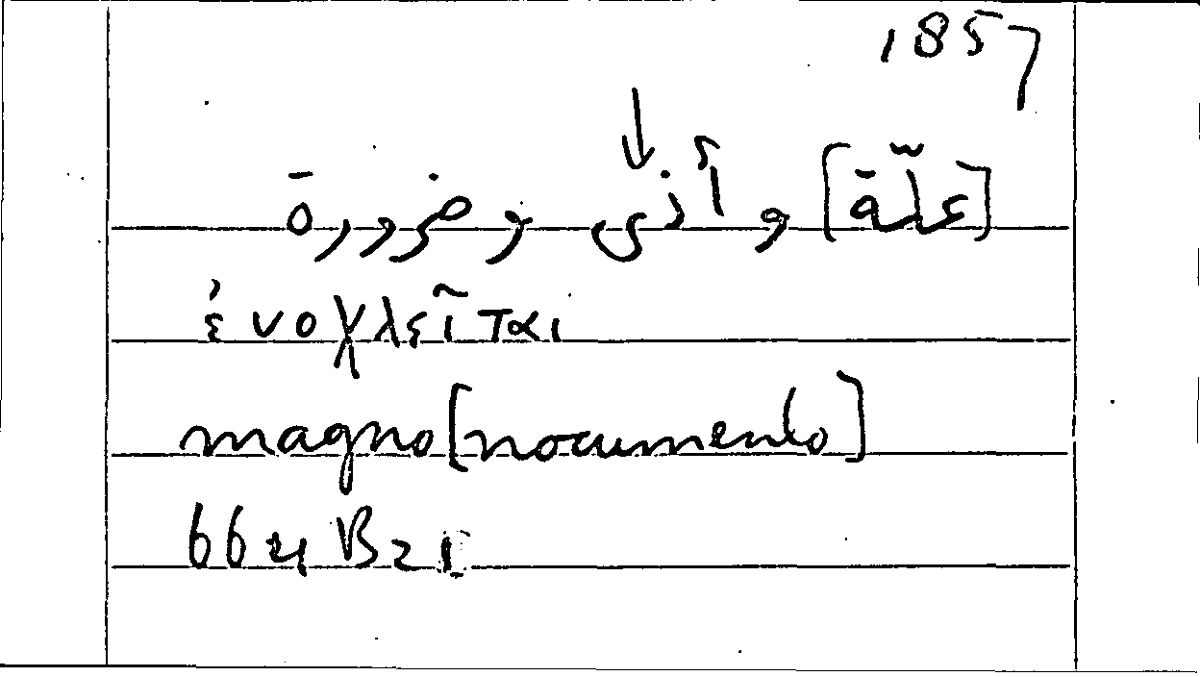 1857
[علّة] و أذى و ضرورة
ἐνοχλεῖται
magno [nocumento]
664 B21